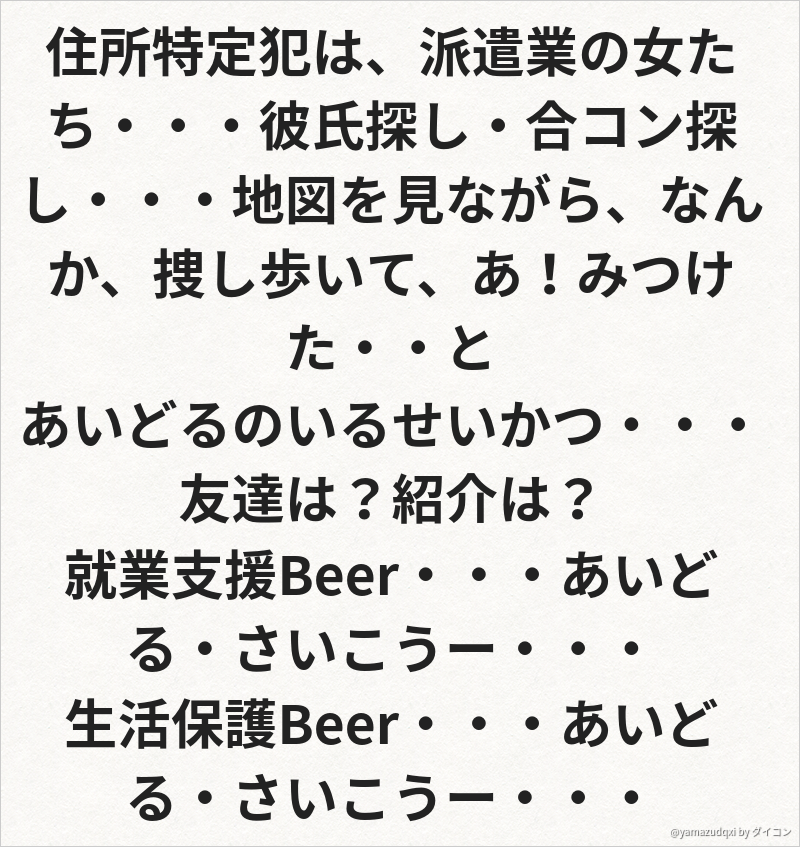 住所特定犯は、派遣業の女た
ち・・・彼氏探し・合コン探
し・・・地図を見ながら、なん
か、捜し歩いて、あ！みつけ
た・・と
あいどるのいるせいかつ・・・
友達は？紹介は？
就業支援Beer・・・あいど
る・さいこうー・・・
生活保護Beer・・・あいど
る・さいこうー・・・
@yamazudqxi by ダイコン